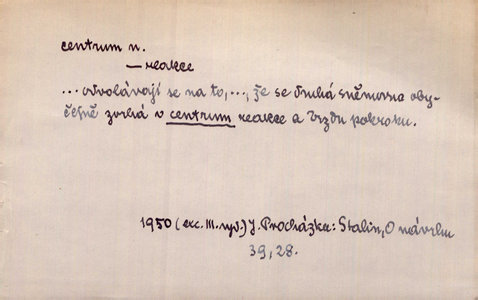 centrum n.
— reakce
... odvolávají se na to, ..., že se druhá sněmovna oby-
čejně zvrhá v centrum reakce a brzdu pokroku.
1950 (exc. III. vyd.) J. Procházka: Stalin, O návrhu
39, 28.